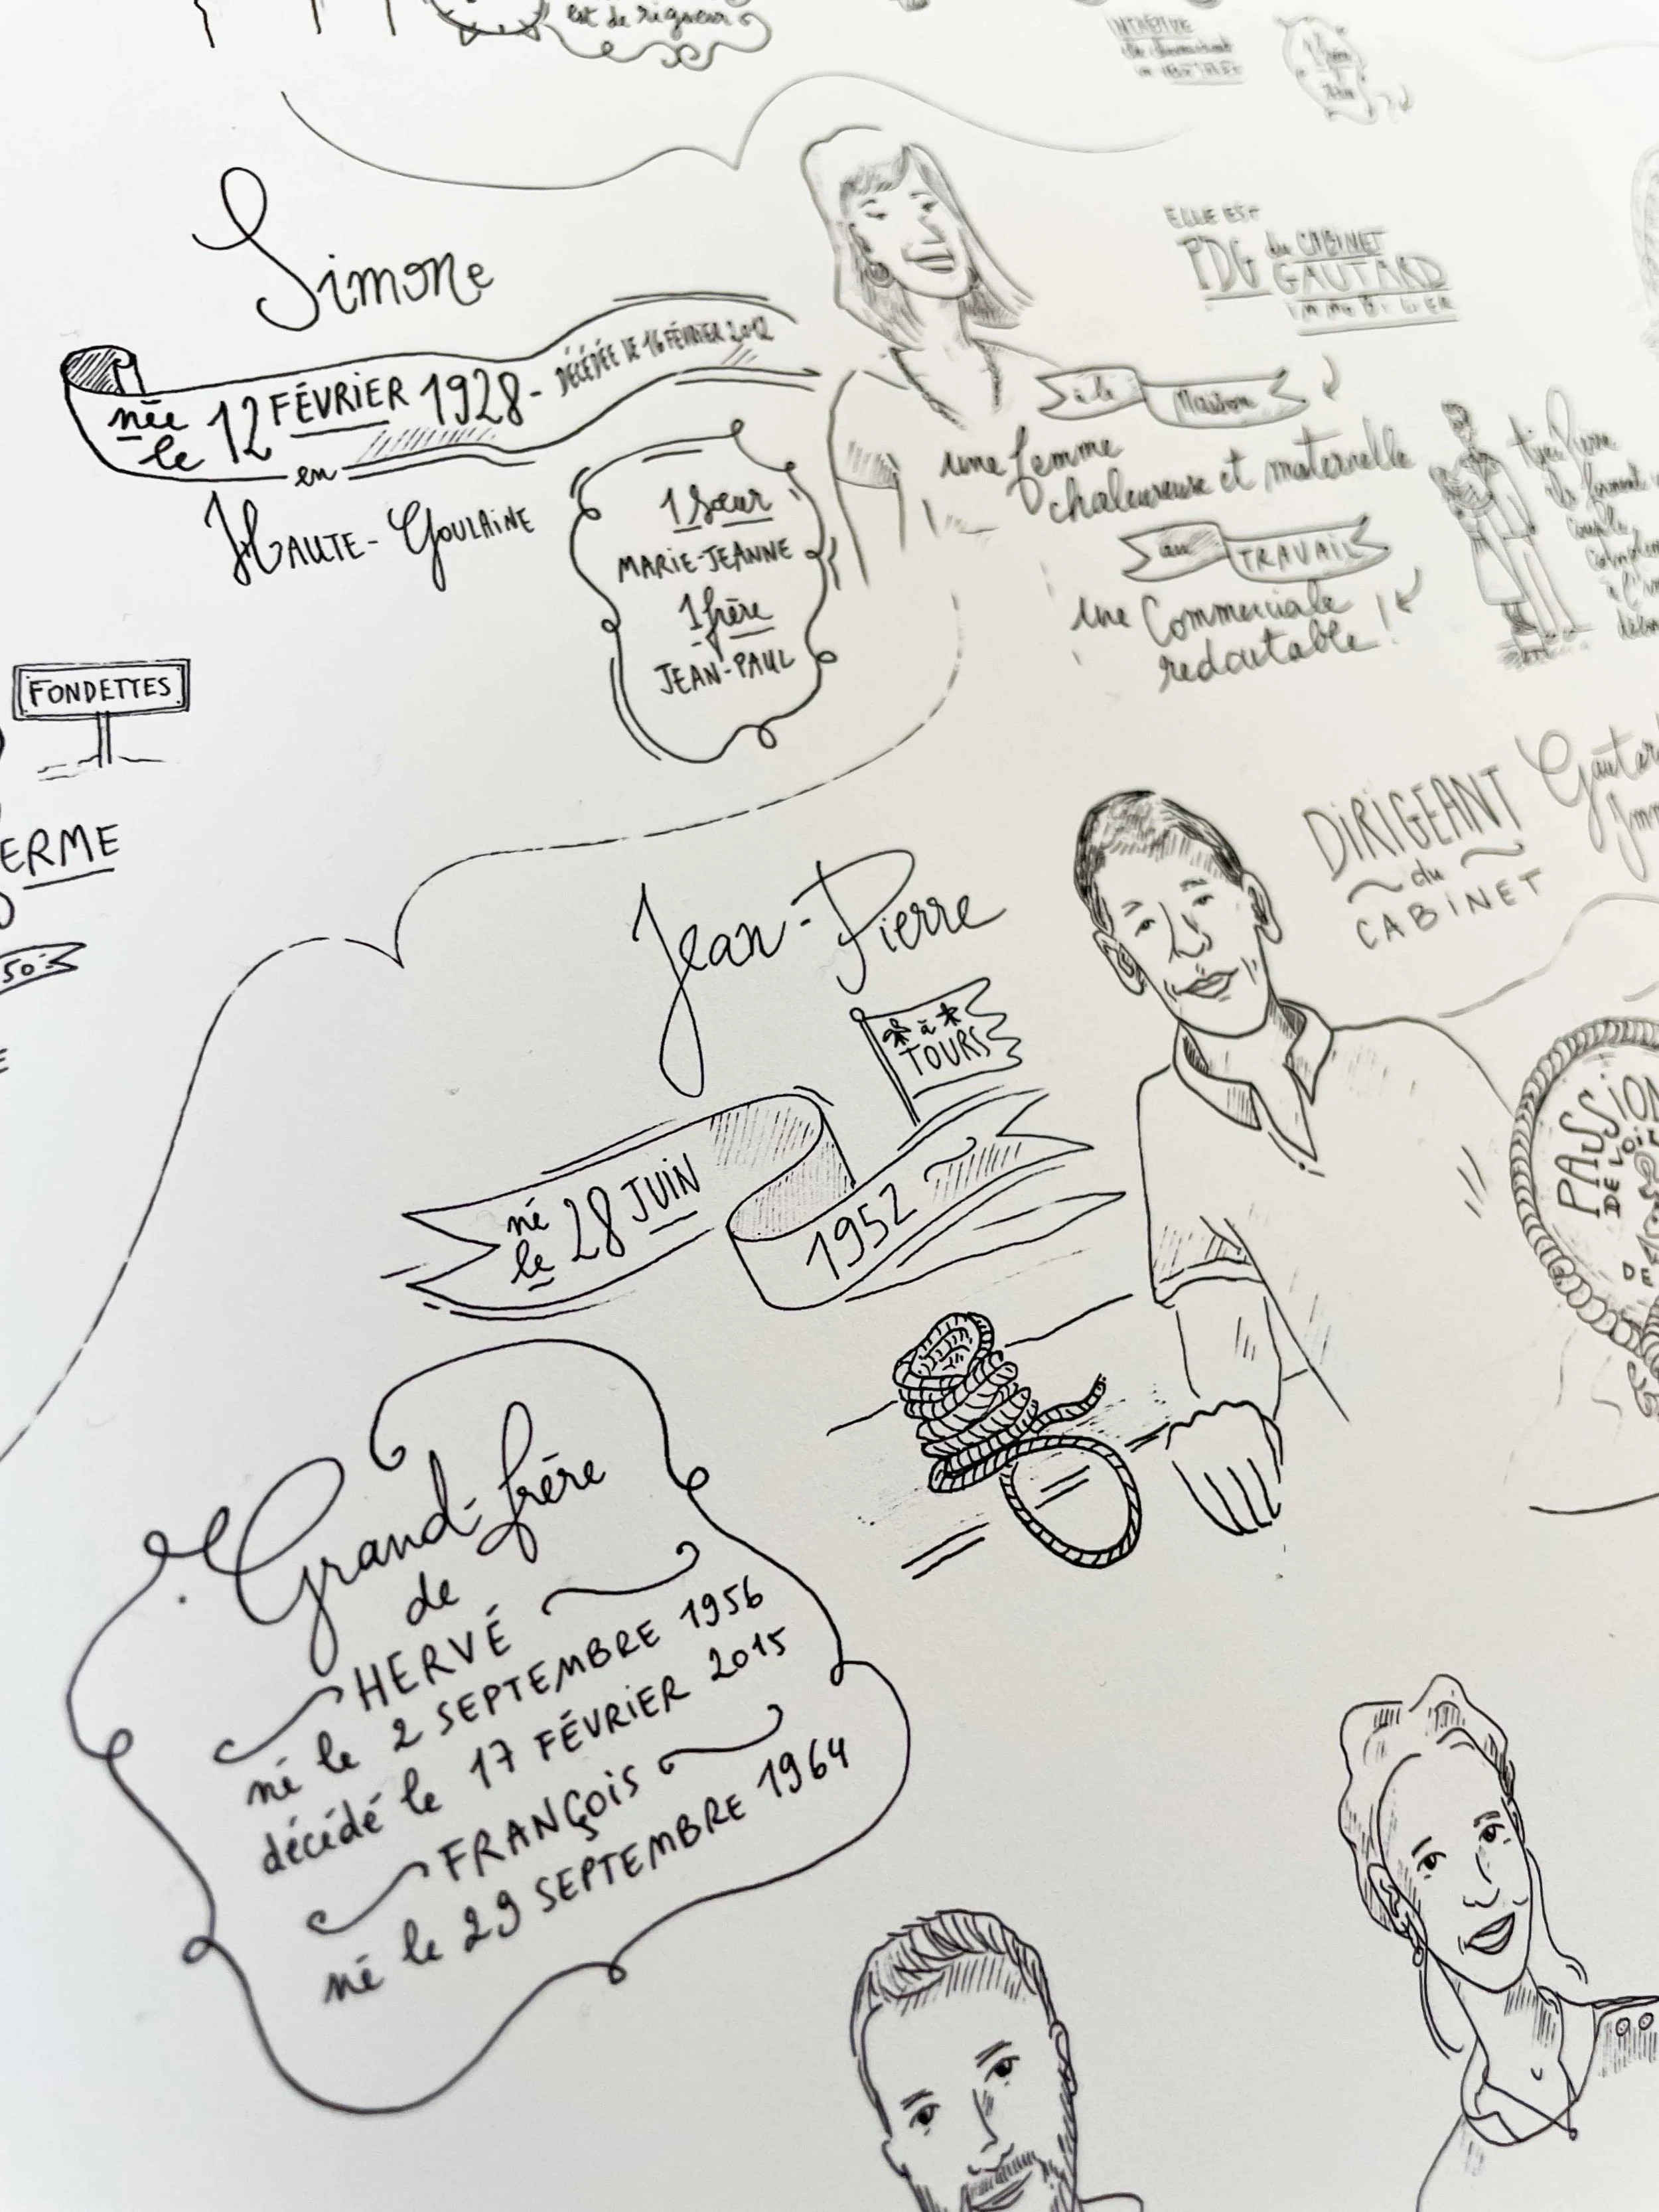 est de rigueur
Simone
née le 12 FÉVRIER 1928 - DÉCÉDÉE LE 16 FÉVRIER 2012
en
HAUTE-GOULAINE
1 Sœur
MARIE-JEANNE
1 frère
JEAN-PAUL
ELLE EST
PDG du CABINET
GAUTARD
IMMOBILIER
à la Maison
une femme
chaleureuse et maternelle
au TRAVAIL
une Commerciale
redoutable !
FONDETTES
ERME
50
DIRIGEANT
du
CABINET
Jean-Pierre
à
TOURS
né le 28 JUIN 1952
PASSION
DE
Grand-frère
de
HERVÉ
né le 2 SEPTEMBRE 1956
décédé le 17 FÉVRIER 2015
FRANÇOIS
né le 29 SEPTEMBRE 1964